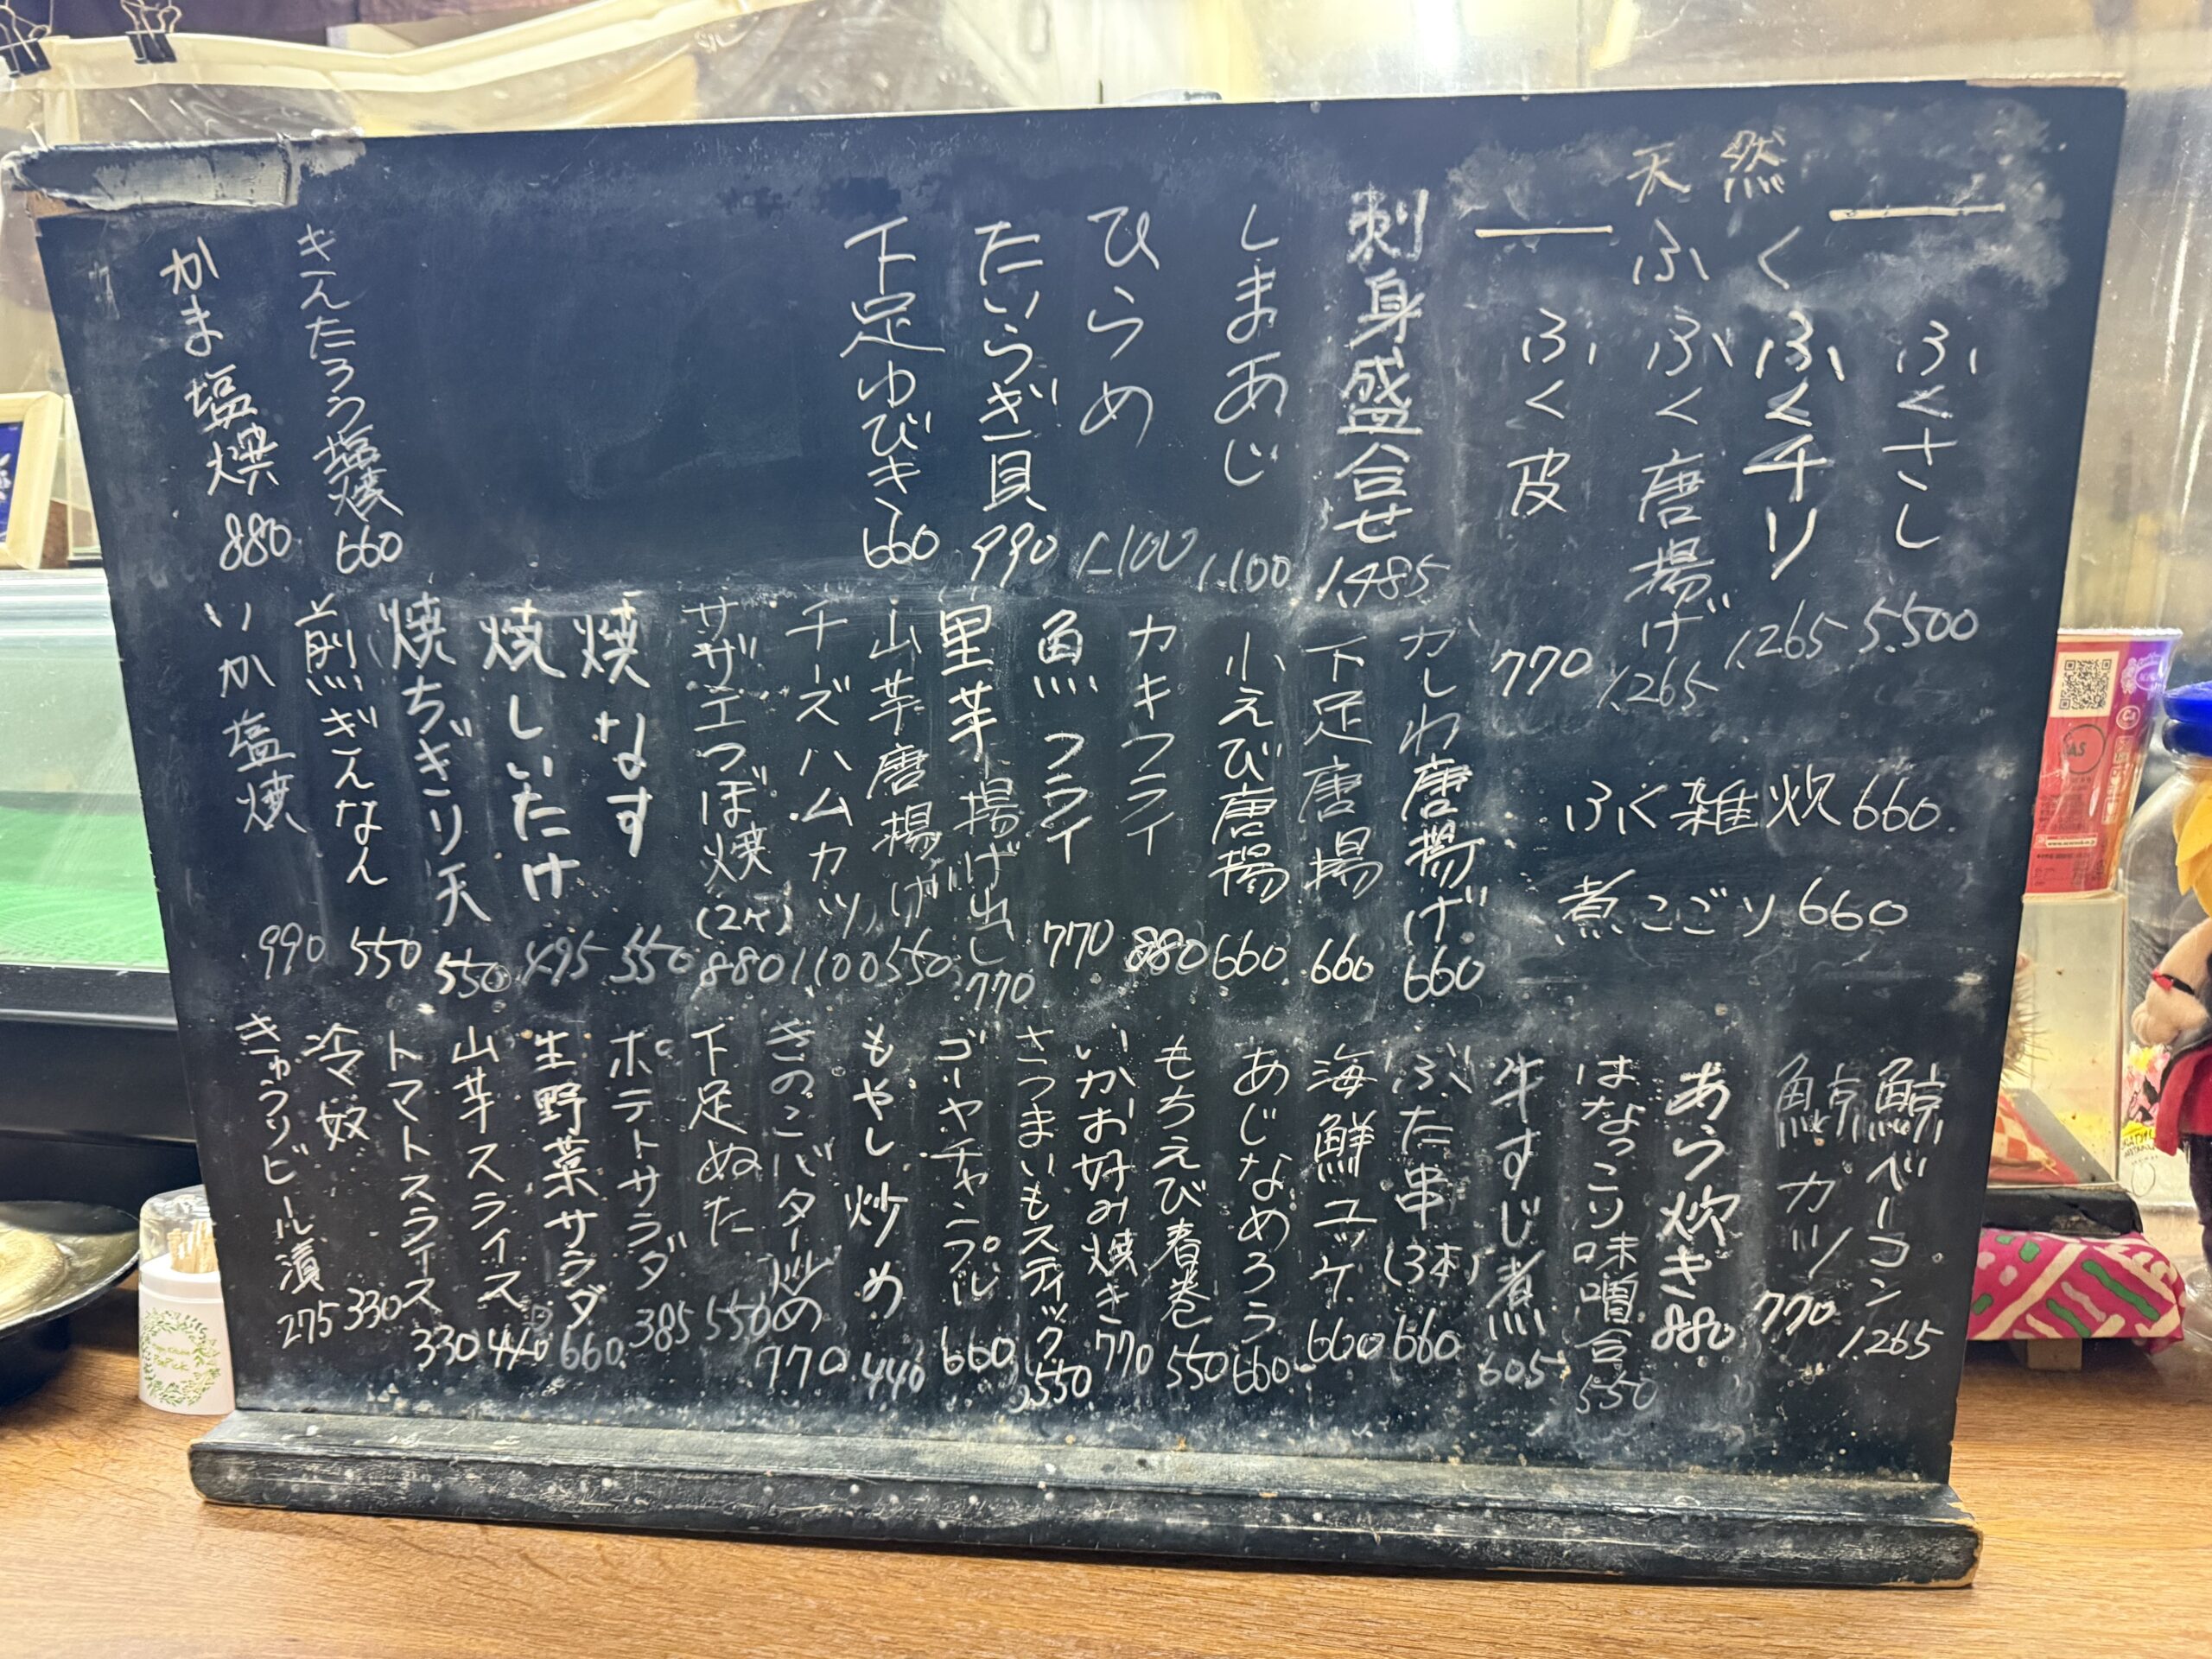 天然
ふく
ふくさし 5,500
ふくチリ 1,265
ふく唐揚げ 1,265
ふく皮 770
ふく雑炊 660
煮こごり 660
刺身盛合せ 1,485
しまあじ 1,100
ひらめ 1,100
たいらぎ貝 990
下足ゆびき 660
きんたろう塩焼 660
かま塩焼 880
かしわ唐揚げ 660
下足唐揚 660
小えび唐揚 660
カキフライ 880
魚フライ 770
里芋揚げ出し 770
山芋唐揚げ 550
チーズハムカツ 1,100
サザエつぼ焼(2ケ) 880
焼なす 550
焼しいたけ 495
焼ちぎり天 550
煎ぎんなん 550
いか塩焼 990
鯨ベーコン 1,265
鯨カツ 770
あら炊き 880
はなっこり味噌合 550
牛すじ煮 605
ぶた串(3本) 660
海鮮ユッケ 660
あじなめろう 660
もちえび春巻 550
いかお好み焼き 770
さつまいもスティック 550
ゴーヤチャンプル 660
もやし炒め 440
きのこバター炒め 770
下足ぬた 550
ポテトサラダ 385
生野菜サラダ 660
山芋スライス 440
トマトスライス 330
冷奴 330
きゅうりビール漬 275